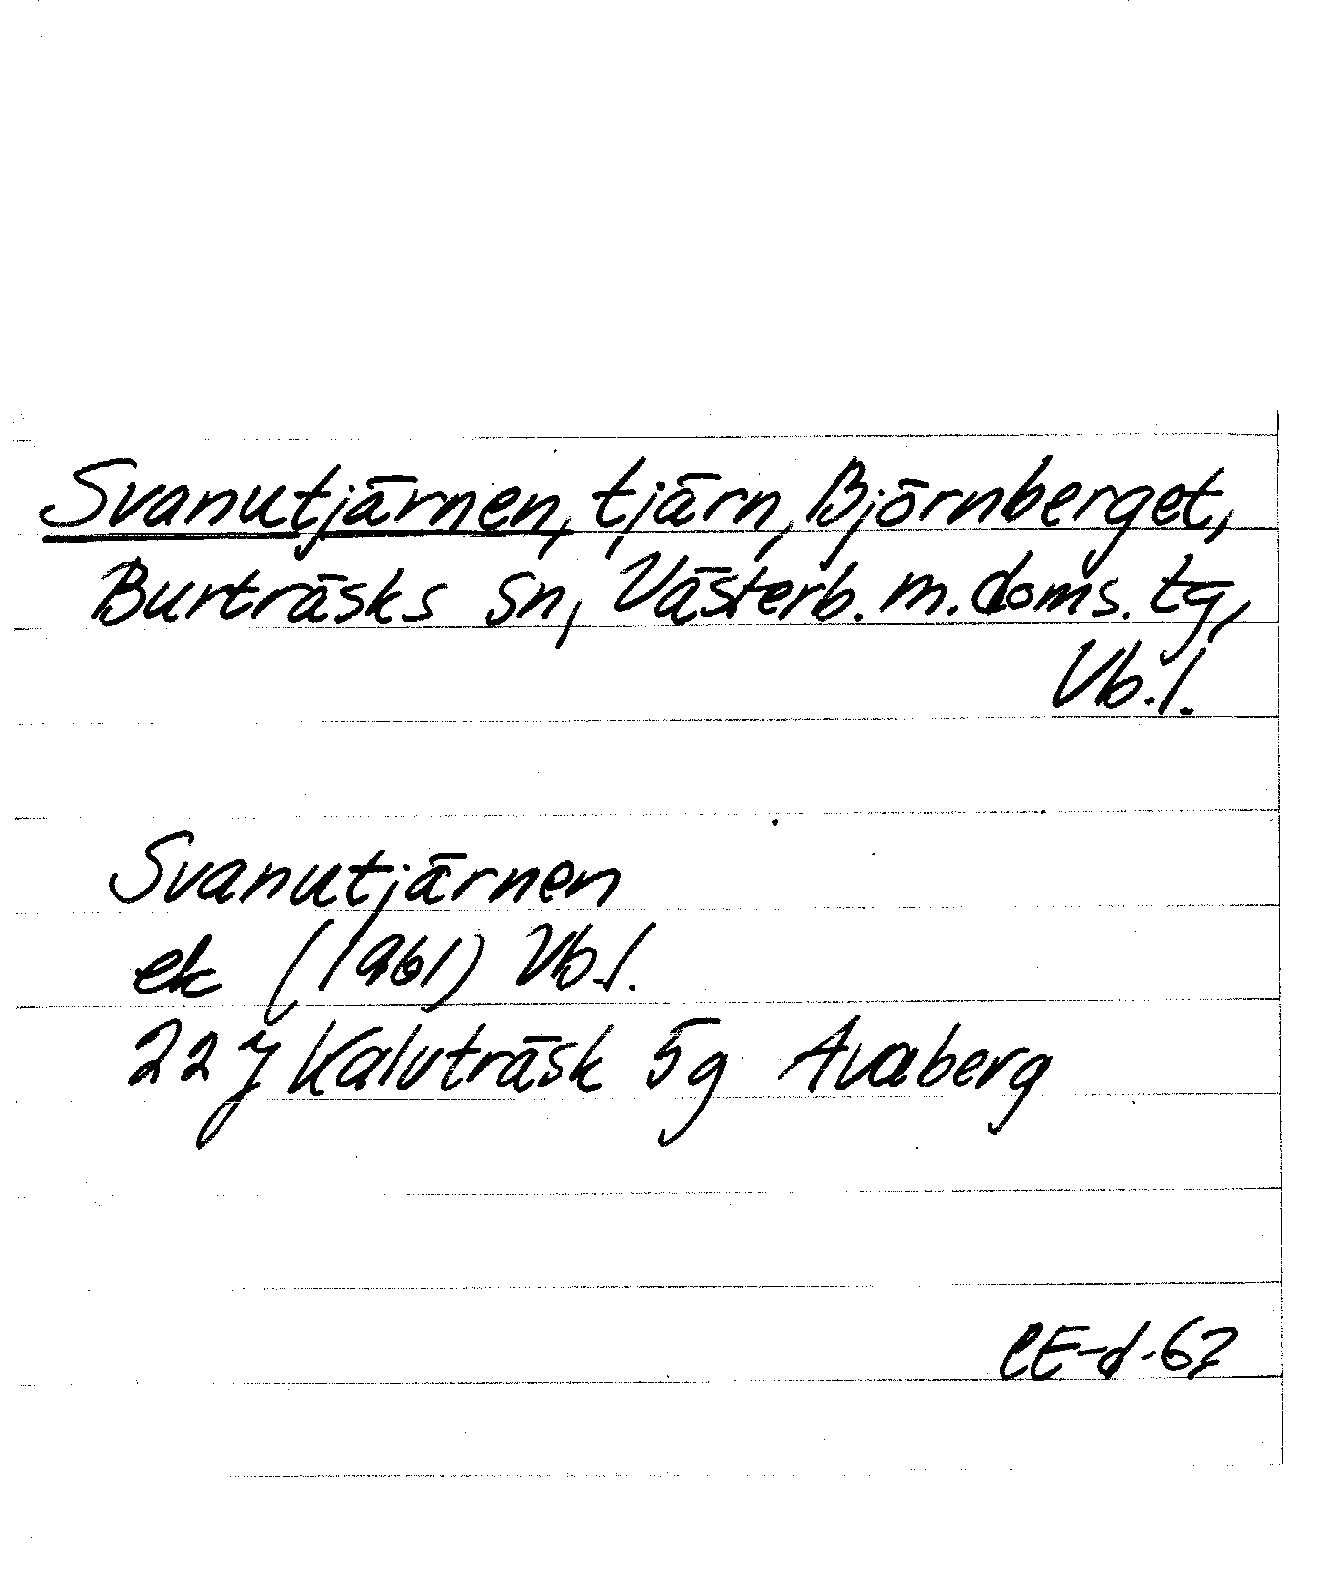 Svanutjärnen, tjärn, Björnberget,
Burträsks sn, Västerb. m. doms. tg,
Vb. l.
Svanutjärnen
ek (1961) Vb. l.
22 J Kalvträsk 5g Avaberg
CE-d-62